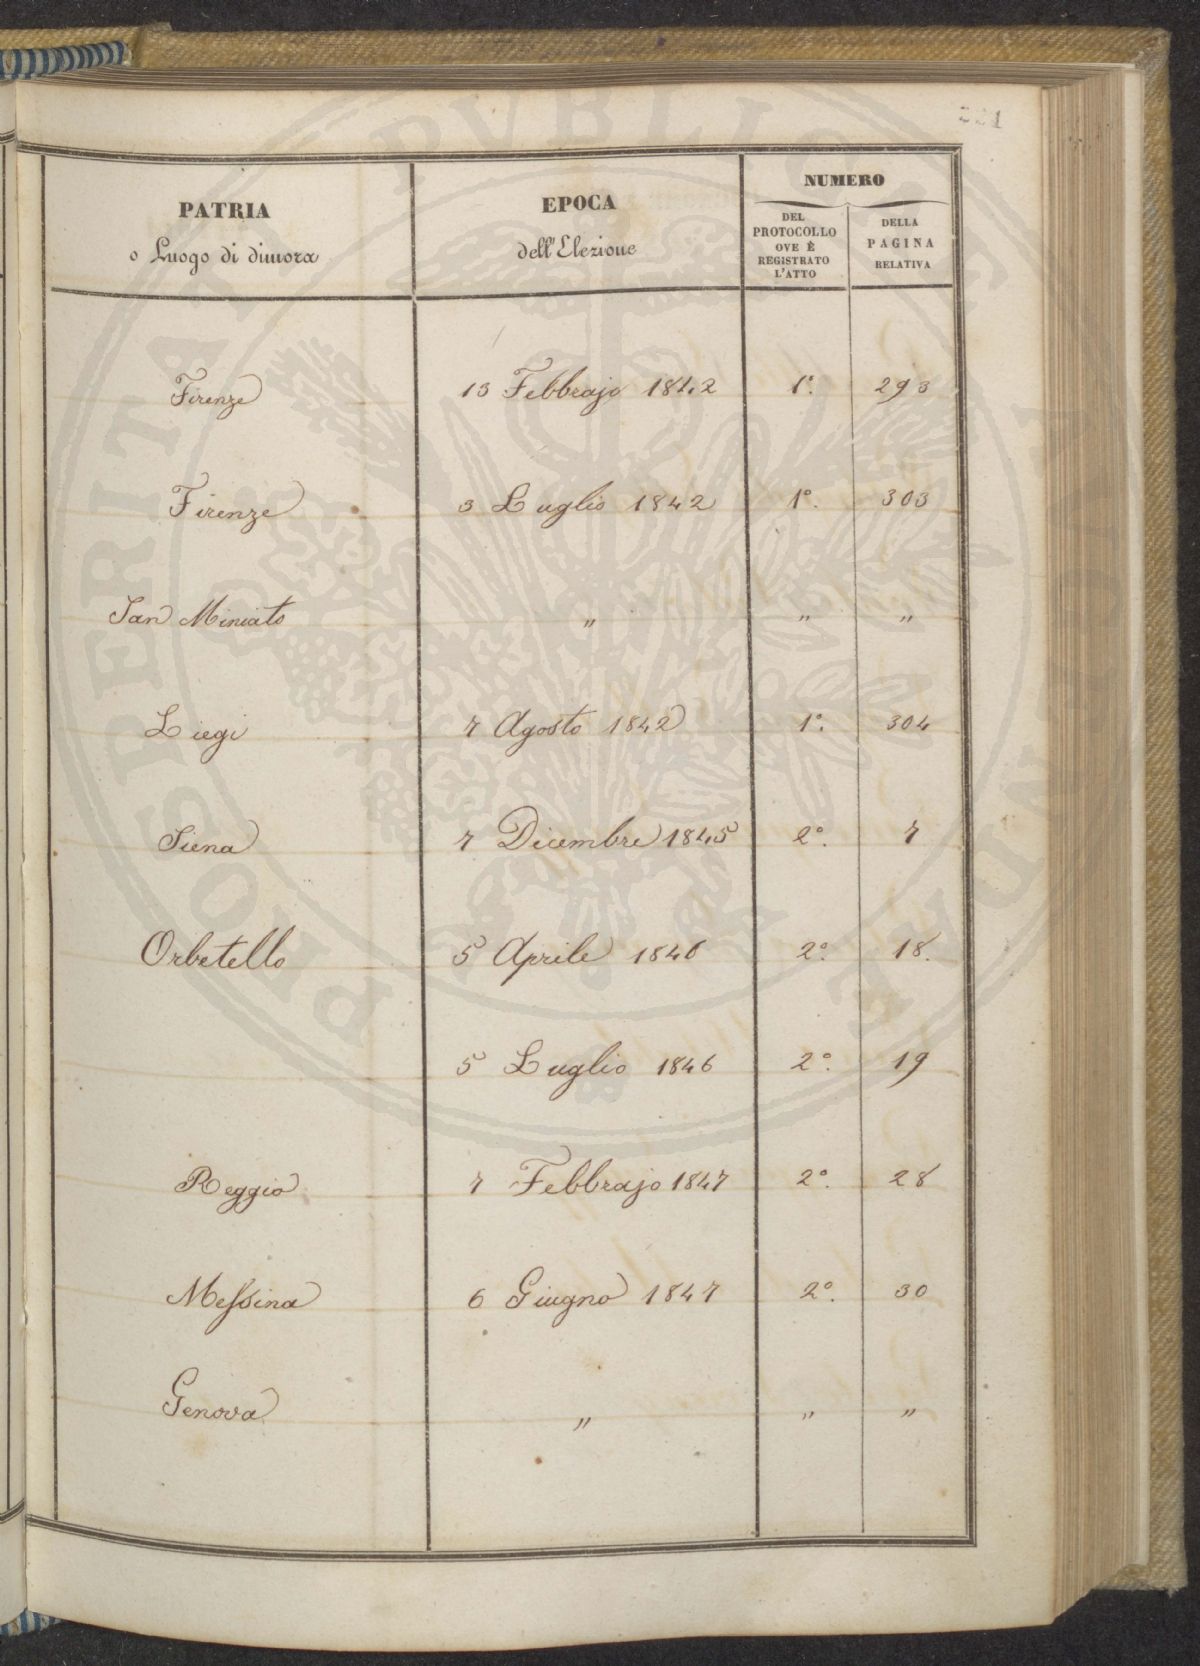 221
PATRIA
o Luogo di dimora
EPOCA
dell'Elezione
NUMERO
DEL
PROTOCOLLO
OVE È
REGISTRATO
L'ATTO
DELLA
PAGINA
RELATIVA
Firenze 13 Febbrajo 1842 1°. 293
Firenze 3 Luglio 1842 1°. 303
San Miniato " " "
Liegi 7 Agosto 1842 1°. 304
Siena 7 Dicembre 1845 2°. 7
Orbetello 5 Aprile 1846 2°. 18.
5 Luglio 1846 2°. 19
Reggio 7 Febbrajo 1847 2°. 28
Messina 6 Giugno 1847 2°. 30
Genova " " "